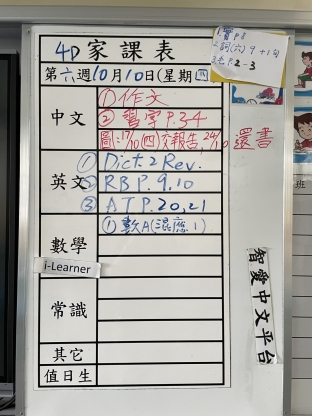 4D家課表
第六週10月10日(星期四)
中文
①作文
②習字P.34
圖:17/10(四)交報告,24/10還書
英文
①Dict.2 Rev.
②RB P.9,10
③AT P.20,21
數學
①數A(混應1)
i-Learner
常識
其它
值日生
智愛中文平台
班
P.8
2.詞(六) 9+1句
P.2-3